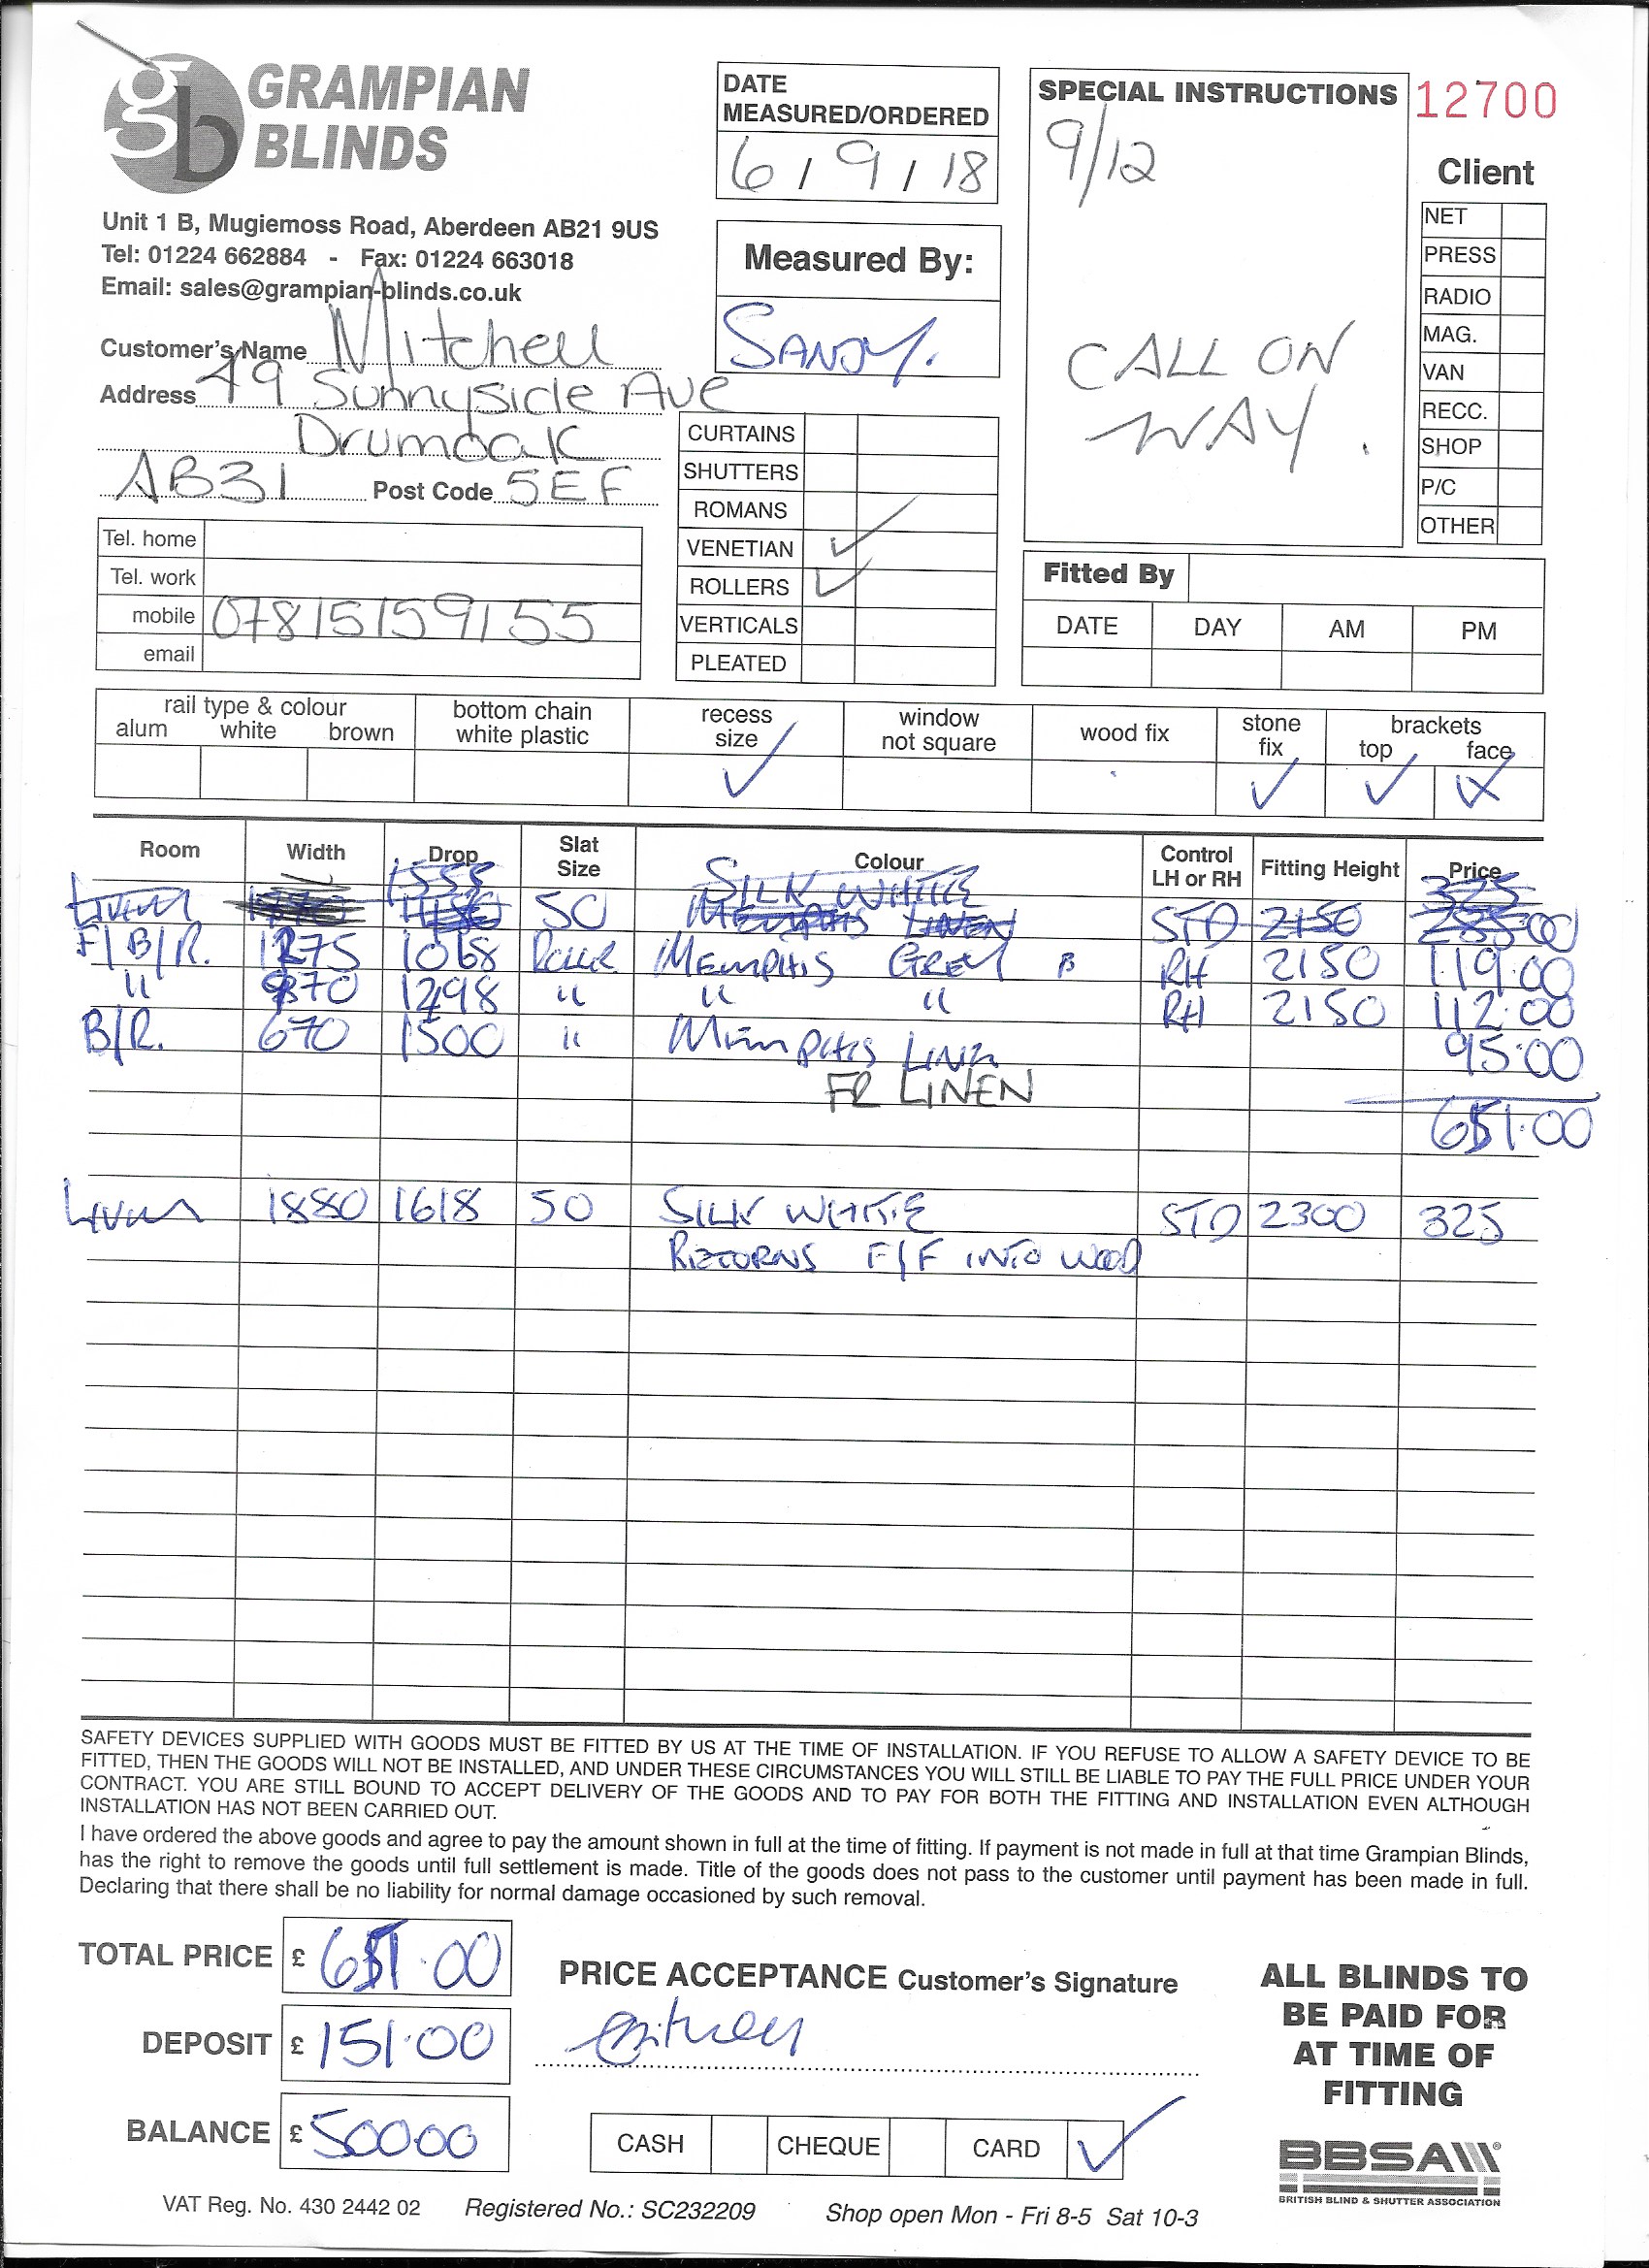 gb GRAMPIAN BLINDS
Unit 1 B, Mugiemoss Road, Aberdeen AB21 9US
Tel: 01224 662884 - Fax: 01224 663018
Email: sales@grampian-blinds.co.uk
Customer's Name Mitchell
Address 49 Sunnyside Ave
Drumoak
AB31 Post Code 5EF
Tel. home
Tel. work
mobile 07815159155
email
DATE
MEASURED/ORDERED
6 / 9 / 18
Measured By:
SANDY.
CURTAINS
SHUTTERS
ROMANS
VENETIAN ✓
ROLLERS ✓
VERTICALS
PLEATED
SPECIAL INSTRUCTIONS
9/12
CALL ON
WAY.
12700
Client
NET
PRESS
RADIO
MAG.
VAN
RECC.
SHOP
P/C
OTHER
Fitted By
DATE DAY AM PM
rail type & colour
alum white brown
bottom chain
white plastic
recess
size ✓
window
not square
wood fix
stone
fix ✓
brackets
top ✓ face
Room Width Drop Slat Size Colour Control LH or RH Fitting Height Price
1555 SILK WHITE 325
Living 50 MEMPHIS LINEN STD 2150 00
F/B/R. 1275 1068 ROLLER MEMPHIS GREY B RH 2150 119.00
" 970 1298 " " " RH 2150 112.00
B/R. 670 1500 " MEMPHIS 95.00
FR LINEN
651.00
Living 1880 1618 50 SILK WHITE STD 2300 325
RETURNS F/F INTO WOOD
SAFETY DEVICES SUPPLIED WITH GOODS MUST BE FITTED BY US AT THE TIME OF INSTALLATION. IF YOU REFUSE TO ALLOW A SAFETY DEVICE TO BE
FITTED, THEN THE GOODS WILL NOT BE INSTALLED, AND UNDER THESE CIRCUMSTANCES YOU WILL STILL BE LIABLE TO PAY THE FULL PRICE UNDER YOUR
CONTRACT. YOU ARE STILL BOUND TO ACCEPT DELIVERY OF THE GOODS AND TO PAY FOR BOTH THE FITTING AND INSTALLATION EVEN ALTHOUGH
INSTALLATION HAS NOT BEEN CARRIED OUT.
I have ordered the above goods and agree to pay the amount shown in full at the time of fitting. If payment is not made in full at that time Grampian Blinds,
has the right to remove the goods until full settlement is made. Title of the goods does not pass to the customer until payment has been made in full.
Declaring that there shall be no liability for normal damage occasioned by such removal.
TOTAL PRICE £ 651.00
DEPOSIT £ 151.00
BALANCE £ 50000
PRICE ACCEPTANCE Customer's Signature
CASH CHEQUE CARD ✓
ALL BLINDS TO
BE PAID FOR
AT TIME OF
FITTING
BBSA
BRITISH BLIND & SHUTTER ASSOCIATION
VAT Reg. No. 430 2442 02 Registered No.: SC232209 Shop open Mon - Fri 8-5 Sat 10-3